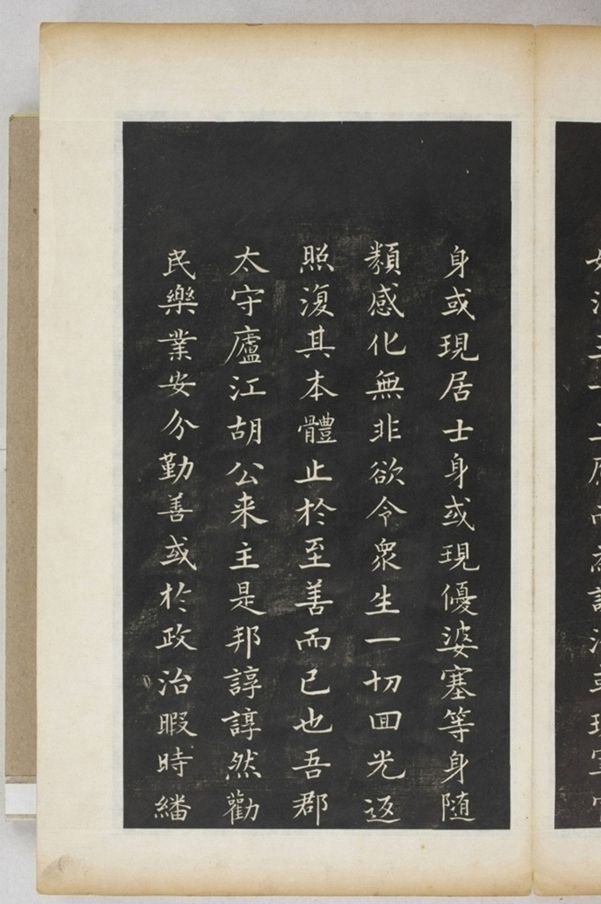 身或現居士身或現優婆塞等身随
類感化無非欲令衆生一切回光返
照復其本體止於至善而已也吾郡
太守廬江胡公来主是邦諄諄然勸
民樂業安分勤善或於政治暇時繙